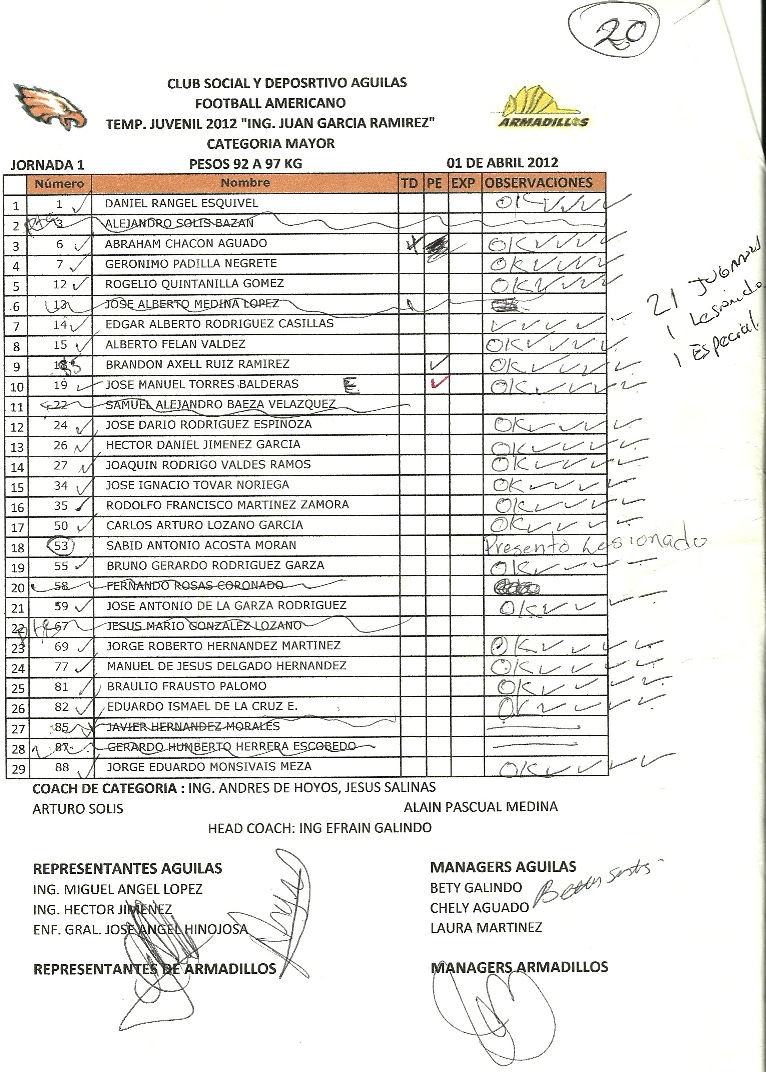 20
CLUB SOCIAL Y DEPOSRTIVO AGUILAS
FOOTBALL AMERICANO
TEMP. JUVENIL 2012 "ING. JUAN GARCIA RAMIREZ"
ARMADILLOS
CATEGORIA MAYOR
JORNADA 1 PESOS 92 A 97 KG 01 DE ABRIL 2012
Número Nombre TD PE EXP OBSERVACIONES
1 1 DANIEL RANGEL ESQUIVEL OK
2 3 ALEJANDRO SOLIS BAZAN
3 6 ABRAHAM CHACON AGUADO OK
4 7 GERONIMO PADILLA NEGRETE OK
5 12 ROGELIO QUINTANILLA GOMEZ OK
6 13 JOSE ALBERTO MEDINA LOPEZ
7 14 EDGAR ALBERTO RODRIGUEZ CASILLAS
8 15 ALBERTO FELAN VALDEZ OK
9 BRANDON AXELL RUIZ RAMIREZ OK
10 19 JOSE MANUEL TORRES BALDERAS E OK
11 22 SAMUEL ALEJANDRO BAEZA VELAZQUEZ
12 24 JOSE DARIO RODRIGUEZ ESPINOZA OK
13 26 HECTOR DANIEL JIMENEZ GARCIA OK
14 27 JOAQUIN RODRIGO VALDES RAMOS OK
15 34 JOSE IGNACIO TOVAR NORIEGA OK
16 35 RODOLFO FRANCISCO MARTINEZ ZAMORA OK
17 50 CARLOS ARTURO LOZANO GARCIA OK
18 53 SABID ANTONIO ACOSTA MORAN Presento Lesionado
19 55 BRUNO GERARDO RODRIGUEZ GARZA OK
20 58 FERNANDO ROSAS CORONADO
21 59 JOSE ANTONIO DE LA GARZA RODRIGUEZ OK
22 67 JESUS MARIO GONZALEZ LOZANO
23 69 JORGE ROBERTO HERNANDEZ MARTINEZ OK
24 77 MANUEL DE JESUS DELGADO HERNANDEZ OK
25 81 BRAULIO FRAUSTO PALOMO OK
26 82 EDUARDO ISMAEL DE LA CRUZ E. OK
27 85 JAVIER HERNANDEZ MORALES
28 87 GERARDO HUMBERTO HERRERA ESCOBEDO
29 88 JORGE EDUARDO MONSIVAIS MEZA OK
21
1 Lesionado
1 Especial
COACH DE CATEGORIA : ING. ANDRES DE HOYOS, JESUS SALINAS
ARTURO SOLIS ALAIN PASCUAL MEDINA
HEAD COACH: ING EFRAIN GALINDO
REPRESENTANTES AGUILAS MANAGERS AGUILAS
ING. MIGUEL ANGEL LOPEZ BETY GALINDO
ING. HECTOR JIMENEZ CHELY AGUADO
ENF. GRAL. JOSE ANGEL HINOJOSA LAURA MARTINEZ
REPRESENTANTES DE ARMADILLOS MANAGERS ARMADILLOS